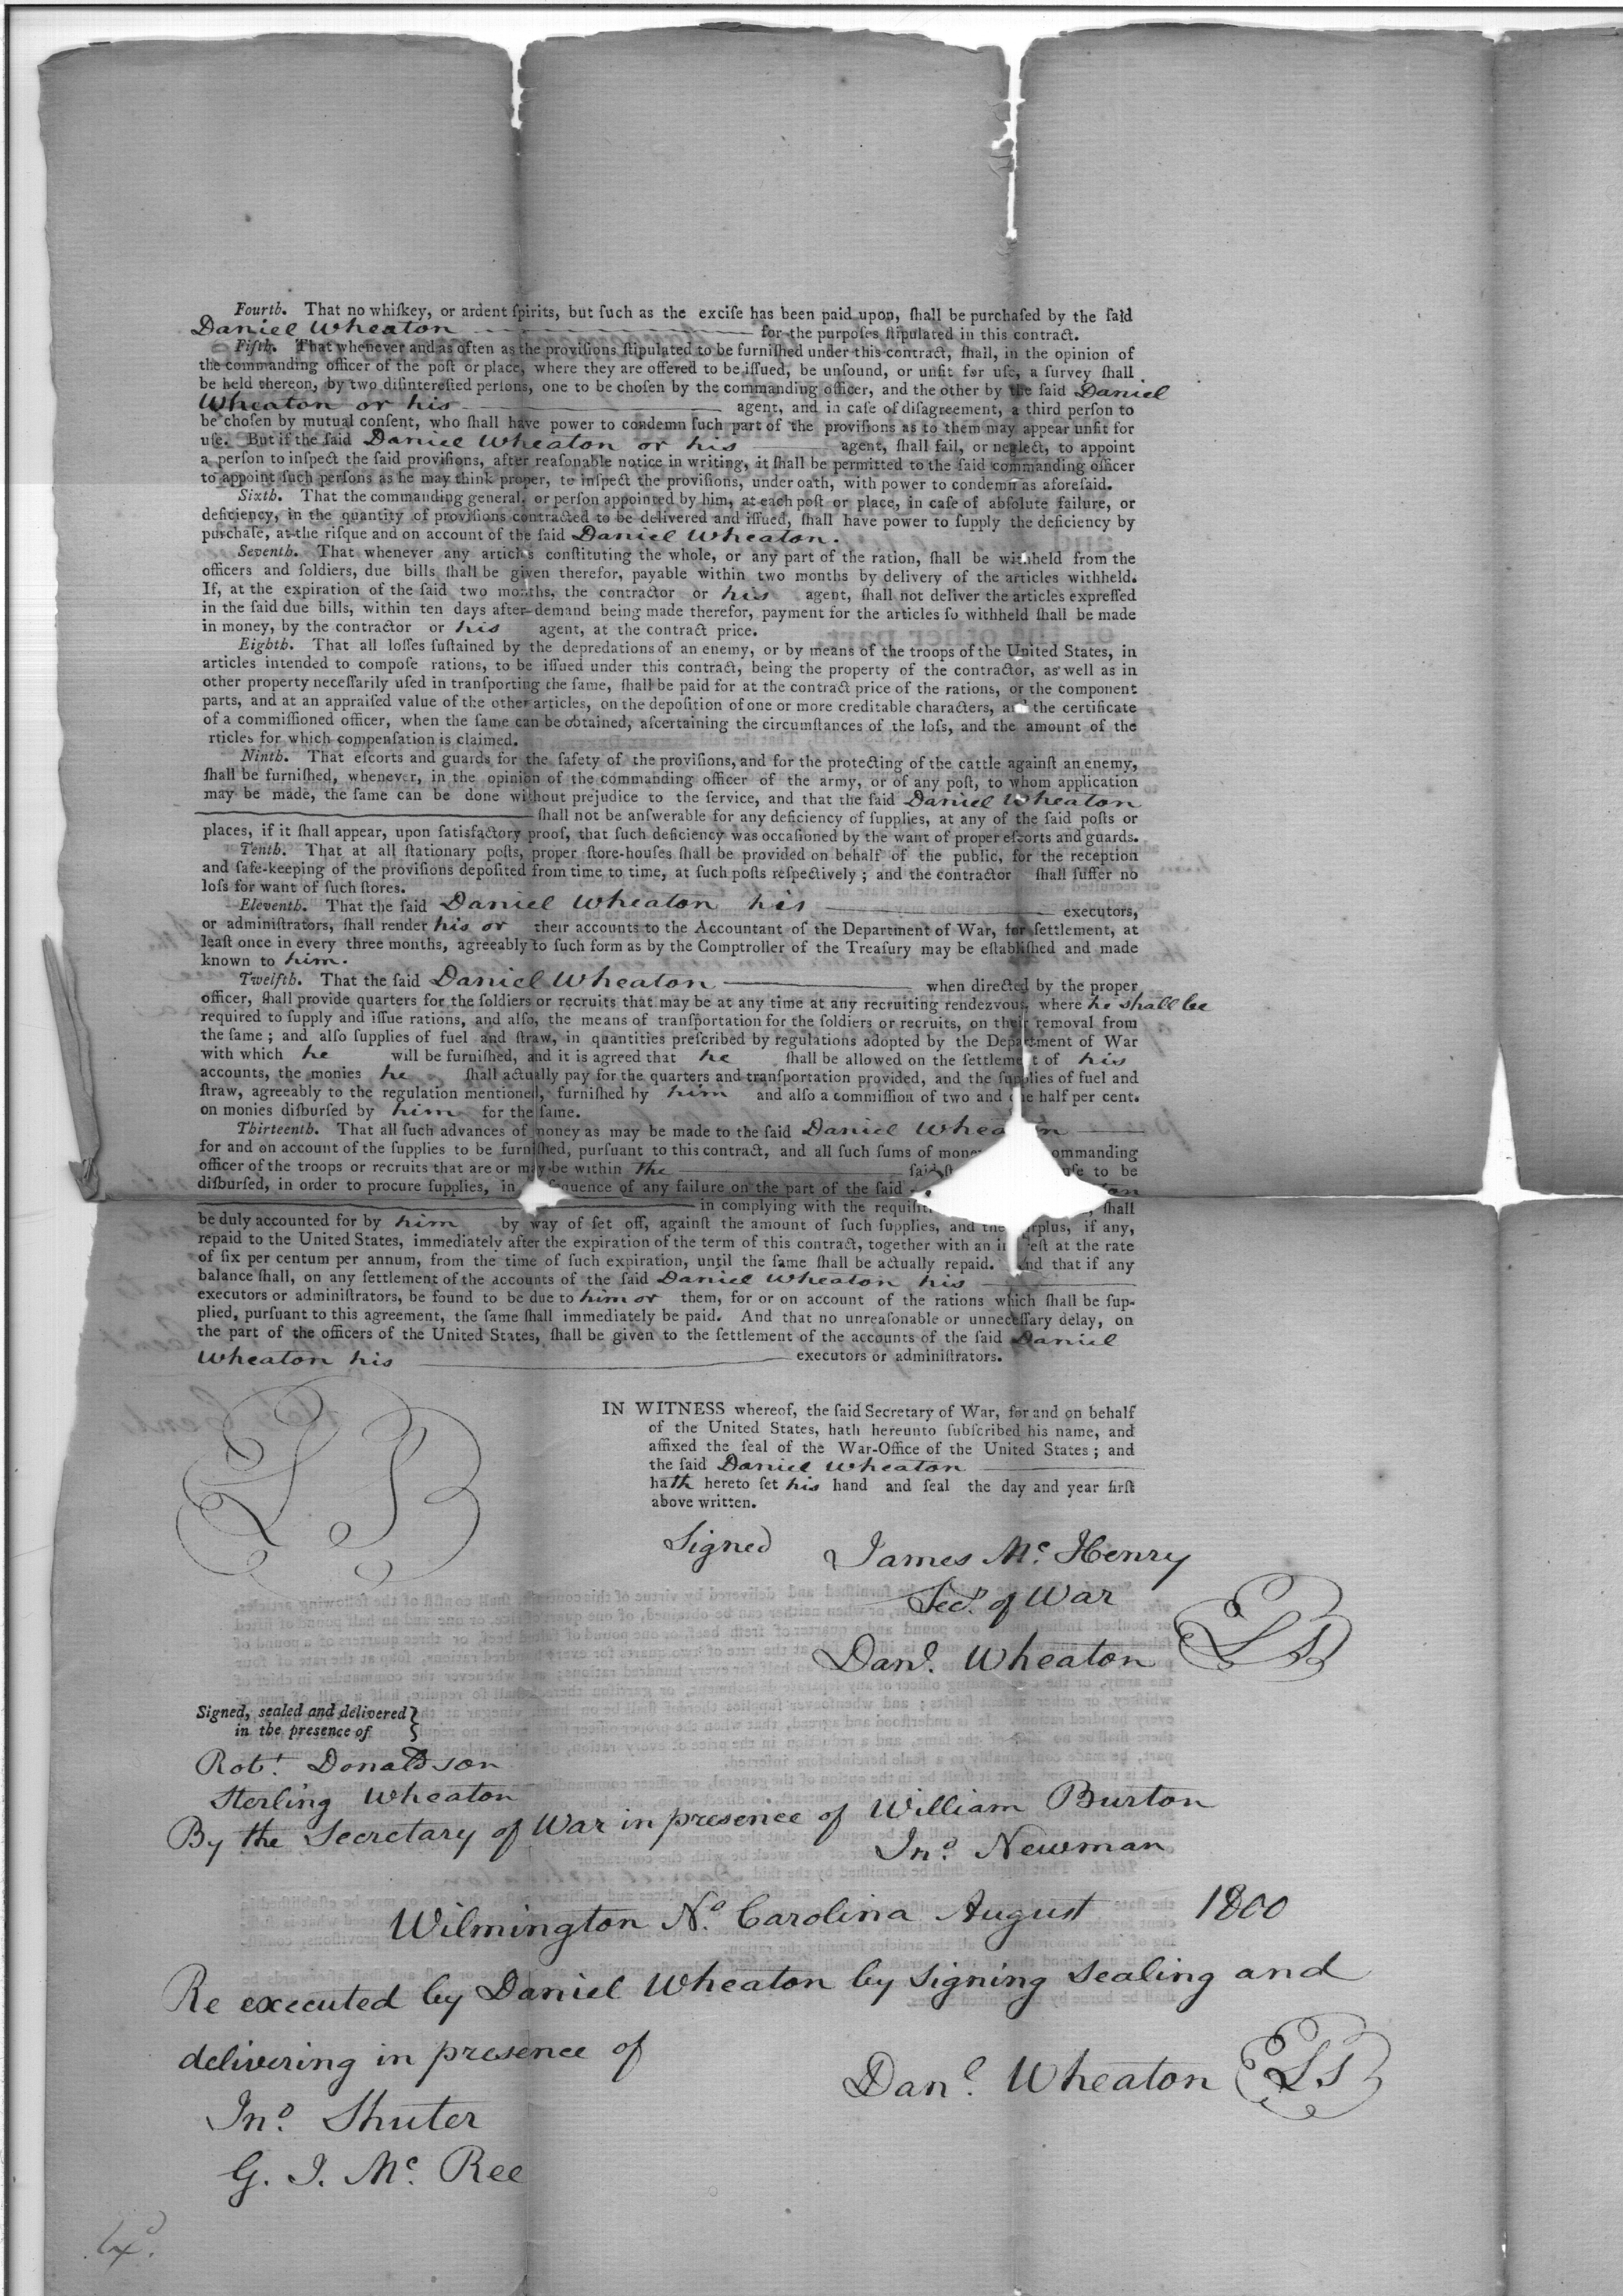 Fourth. That no whiſkey, or ardent ſpirits, but ſuch as the exciſe has been paid upon, ſhall be purchaſed by the ſaid
Daniel Wheaton for the purpoſes ſtipulated in this contract.
Fifth. That whenever and as often as the proviſions ſtipulated to be furniſhed under this contract, ſhall, in the opinion of
the commanding officer of the poſt or place, where they are offered to be iſſued, be unſound, or unfit for uſe, a ſurvey ſhall
be held thereon, by two diſintereſted perſons, one to be choſen by the commanding officer, and the other by the ſaid Daniel
Wheaton or his agent, and in caſe of diſagreement, a third perſon to
be choſen by mutual conſent, who ſhall have power to condemn ſuch part of the proviſions as to them may appear unfit for
uſe. But if the ſaid Daniel Wheaton or his agent, ſhall fail, or neglect, to appoint
a perſon to inſpect the ſaid proviſions, after reaſonable notice in writing, it ſhall be permitted to the ſaid commanding officer
to appoint ſuch perſons as he may think proper, to inſpect the proviſions, under oath, with power to condemn as aforeſaid.
Sixth. That the commanding general, or perſon appointed by him, at each poſt or place, in caſe of abſolute failure, or
deficiency, in the quantity of proviſions contracted to be delivered and iſſued, ſhall have power to ſupply the deficiency by
purchaſe, at the riſque and on account of the ſaid Daniel Wheaton.
Seventh. That whenever any articles conſtituting the whole, or any part of the ration, ſhall be withheld from the
officers and ſoldiers, due bills ſhall be given therefor, payable within two months by delivery of the articles withheld.
If, at the expiration of the ſaid two months, the contractor or his agent, ſhall not deliver the articles expreſſed
in the ſaid due bills, within ten days after demand being made therefor, payment for the articles ſo withheld ſhall be made
in money, by the contractor or his agent, at the contract price.
Eighth. That all loſſes ſuſtained by the depredations of an enemy, or by means of the troops of the United States, in
articles intended to compoſe rations, to be iſſued under this contract, being the property of the contractor, as well as in
other property neceſſarily uſed in tranſporting the ſame, ſhall be paid for at the contract price of the rations, or the component
parts, and at an appraiſed value of the other articles, on the depoſition of one or more creditable characters, and the certificate
of a commiſſioned officer, when the ſame can be obtained, aſcertaining the circumſtances of the loſs, and the amount of the
rticles for which compenſation is claimed.
Ninth. That eſcorts and guards for the ſafety of the proviſions, and for the protecting of the cattle againſt an enemy,
ſhall be furniſhed, whenever, in the opinion of the commanding officer of the army, or of any poſt, to whom application
may be made, the ſame can be done without prejudice to the ſervice, and that the ſaid Daniel Wheaton
ſhall not be anſwerable for any deficiency of ſupplies, at any of the ſaid poſts or
places, if it ſhall appear, upon ſatisfactory proof, that ſuch deficiency was occaſioned by the want of proper eſcorts and guards.
Tenth. That at all ſtationary poſts, proper ſtore-houſes ſhall be provided on behalf of the public, for the reception
and ſafe-keeping of the proviſions depoſited from time to time, at ſuch poſts reſpectively ; and the contractor ſhall ſuffer no
loſs for want of ſuch ſtores.
Eleventh. That the ſaid Daniel Wheaton his executors,
or adminiſtrators, ſhall render his or their accounts to the Accountant of the Department of War, for ſettlement, at
leaſt once in every three months, agreeably to ſuch form as by the Comptroller of the Treaſury may be eſtabliſhed and made
known to him.
Twelfth. That the ſaid Daniel Wheaton when directed by the proper
officer, ſhall provide quarters for the ſoldiers or recruits that may be at any time at any recruiting rendezvous, where he shall be
required to ſupply and iſſue rations, and alſo, the means of tranſportation for the ſoldiers or recruits, on their removal from
the ſame ; and alſo ſupplies of fuel and ſtraw, in quantities preſcribed by regulations adopted by the Department of War
with which he will be furniſhed, and it is agreed that he ſhall be allowed on the ſettlement of his
accounts, the monies he ſhall actually pay for the quarters and tranſportation provided, and the ſupplies of fuel and
ſtraw, agreeably to the regulation mentioned, furniſhed by him and alſo a commiſſion of two and one half per cent.
on monies diſburſed by him for the ſame.
Thirteenth. That all ſuch advances of money as may be made to the ſaid Daniel Wheaton
for and on account of the ſupplies to be furniſhed, purſuant to this contract, and all ſuch ſums of mone ommanding
officer of the troops or recruits that are or may be within the ſaid uſe to be
diſburſed, in order to procure ſupplies, in ſequence of any failure on the part of the ſaid
in complying with the requiſiti ſhall
be duly accounted for by him by way of ſet off, againſt the amount of ſuch ſupplies, and the ſurplus, if any,
repaid to the United States, immediately after the expiration of the term of this contract, together with an intereſt at the rate
of ſix per centum per annum, from the time of ſuch expiration, until the ſame ſhall be actually repaid. And that if any
balance ſhall, on any ſettlement of the accounts of the ſaid Daniel Wheaton his
executors or adminiſtrators, be found to be due to him or them, for or on account of the rations which ſhall be ſup-
plied, purſuant to this agreement, the ſame ſhall immediately be paid. And that no unreaſonable or unneceſſary delay, on
the part of the officers of the United States, ſhall be given to the ſettlement of the accounts of the ſaid Daniel
Wheaton his executors or adminiſtrators.
IN WITNESS whereof, the ſaid Secretary of War, for and on behalf
of the United States, hath hereunto ſubſcribed his name, and
affixed the ſeal of the War-Office of the United States ; and
the ſaid Daniel Wheaton
hath hereto ſet his hand and ſeal the day and year firſt
above written.
Signed James Mc. Henry
Secy. of War
Danl. Wheaton LS
Signed, sealed and delivered
in the presence of
Robt. Donaldson
Sterling Wheaton
By the Secretary of War in presence of William Burton
Jno. Newman
Wilmington No. Carolina August 1800
Re executed by Daniel Wheaton by signing sealing and
delivering in presence of
Danl. Wheaton LS
Jno. Shuter
G. J. Mc. Ree